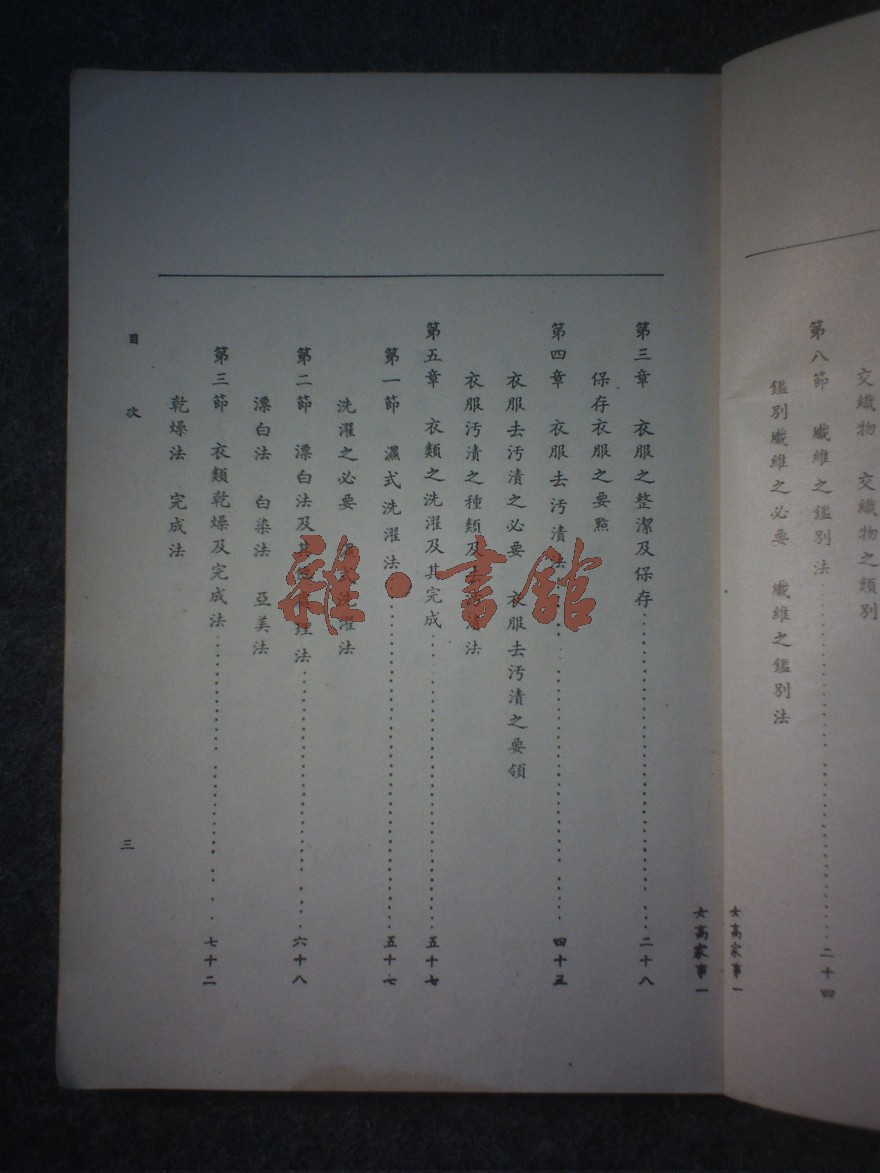 交織物　交織物之類別
第八節　纖維之鑑別法……二十四
鑑別纖維之必要　纖維之鑑別法
女高家事一
女高家事一
第三章　衣服之整潔及保存……二十八
保存衣服之要點
第四章　衣服去汚漬法……四十五
衣服去汚漬之必要　衣服去汚漬之要領
衣服汚漬之種類及去
第五章　衣類之洗濯及其完成……五十七
第一節　濕式洗濯法……五十七
洗濯之必要　式洗濯法
第二節　漂白法及其理法……六十八
漂白法　白染法　亞美法
第三節　衣類乾燥及完成法……七十二
乾燥法　完成法
目次
三
雜·書館